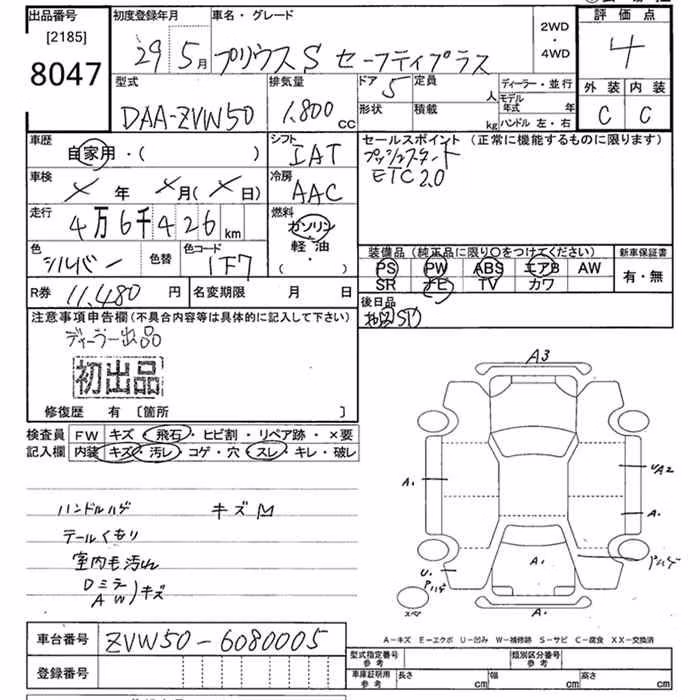 出品番号
[2185]
8047
初度登録年月
29 5月
車名・グレード
プリウスS セーフティプラス
2WD
・
4WD
評価点
4
外装 内装
C C
型式
DAA-ZVW50
排気量
1.800 cc
ドア
5
定員
人
形状
積載
kg
ディーラー・並行
モデル年式 年
ハンドル 左・右
車歴
自家用・( )
シフト
IAT
セールスポイント (正常に機能するものに限ります)
プッシュスタート
ETC2.0
車検
× 年 ×月(×日)
冷房
AAC
走行
4万6千426km
燃料
ガソリン
軽油
・( )
色
シルバー
色替
色コード
1F7
装備品(純正品に限り○をつけてください)
PS PW ABS エアB AW
SR ナビ TV カワ
新車保証書
有・無
R券 11,480 円
名変期限 月 日
後日品
注意事項申告欄(不具合内容等は具体的に記入して下さい)
ディーラー出品
初出品
修復歴 有 〔箇所 〕
検査員 FW キズ・飛石・ヒビ割・リペア跡・×要
記入欄 内装 キズ・汚レ・コゲ・穴・スレ・キレ・破レ
ハンドルハゲ キズM
テールくもり
室内毛汚れ
Dミラ
AW)キズ
A3
A. UA2
A.
A.
U. ハゲ
ハゲ
A.
スペア
A-キズ E-エクボ U-凹み W-補修跡 S-サビ C-腐食 XX-交換済
車台番号 ZVW50-6080005
登録番号
型式指定番号
参考
類別区分番号
参考
車庫証明用
参考
長さ cm 幅 cm 高さ cm